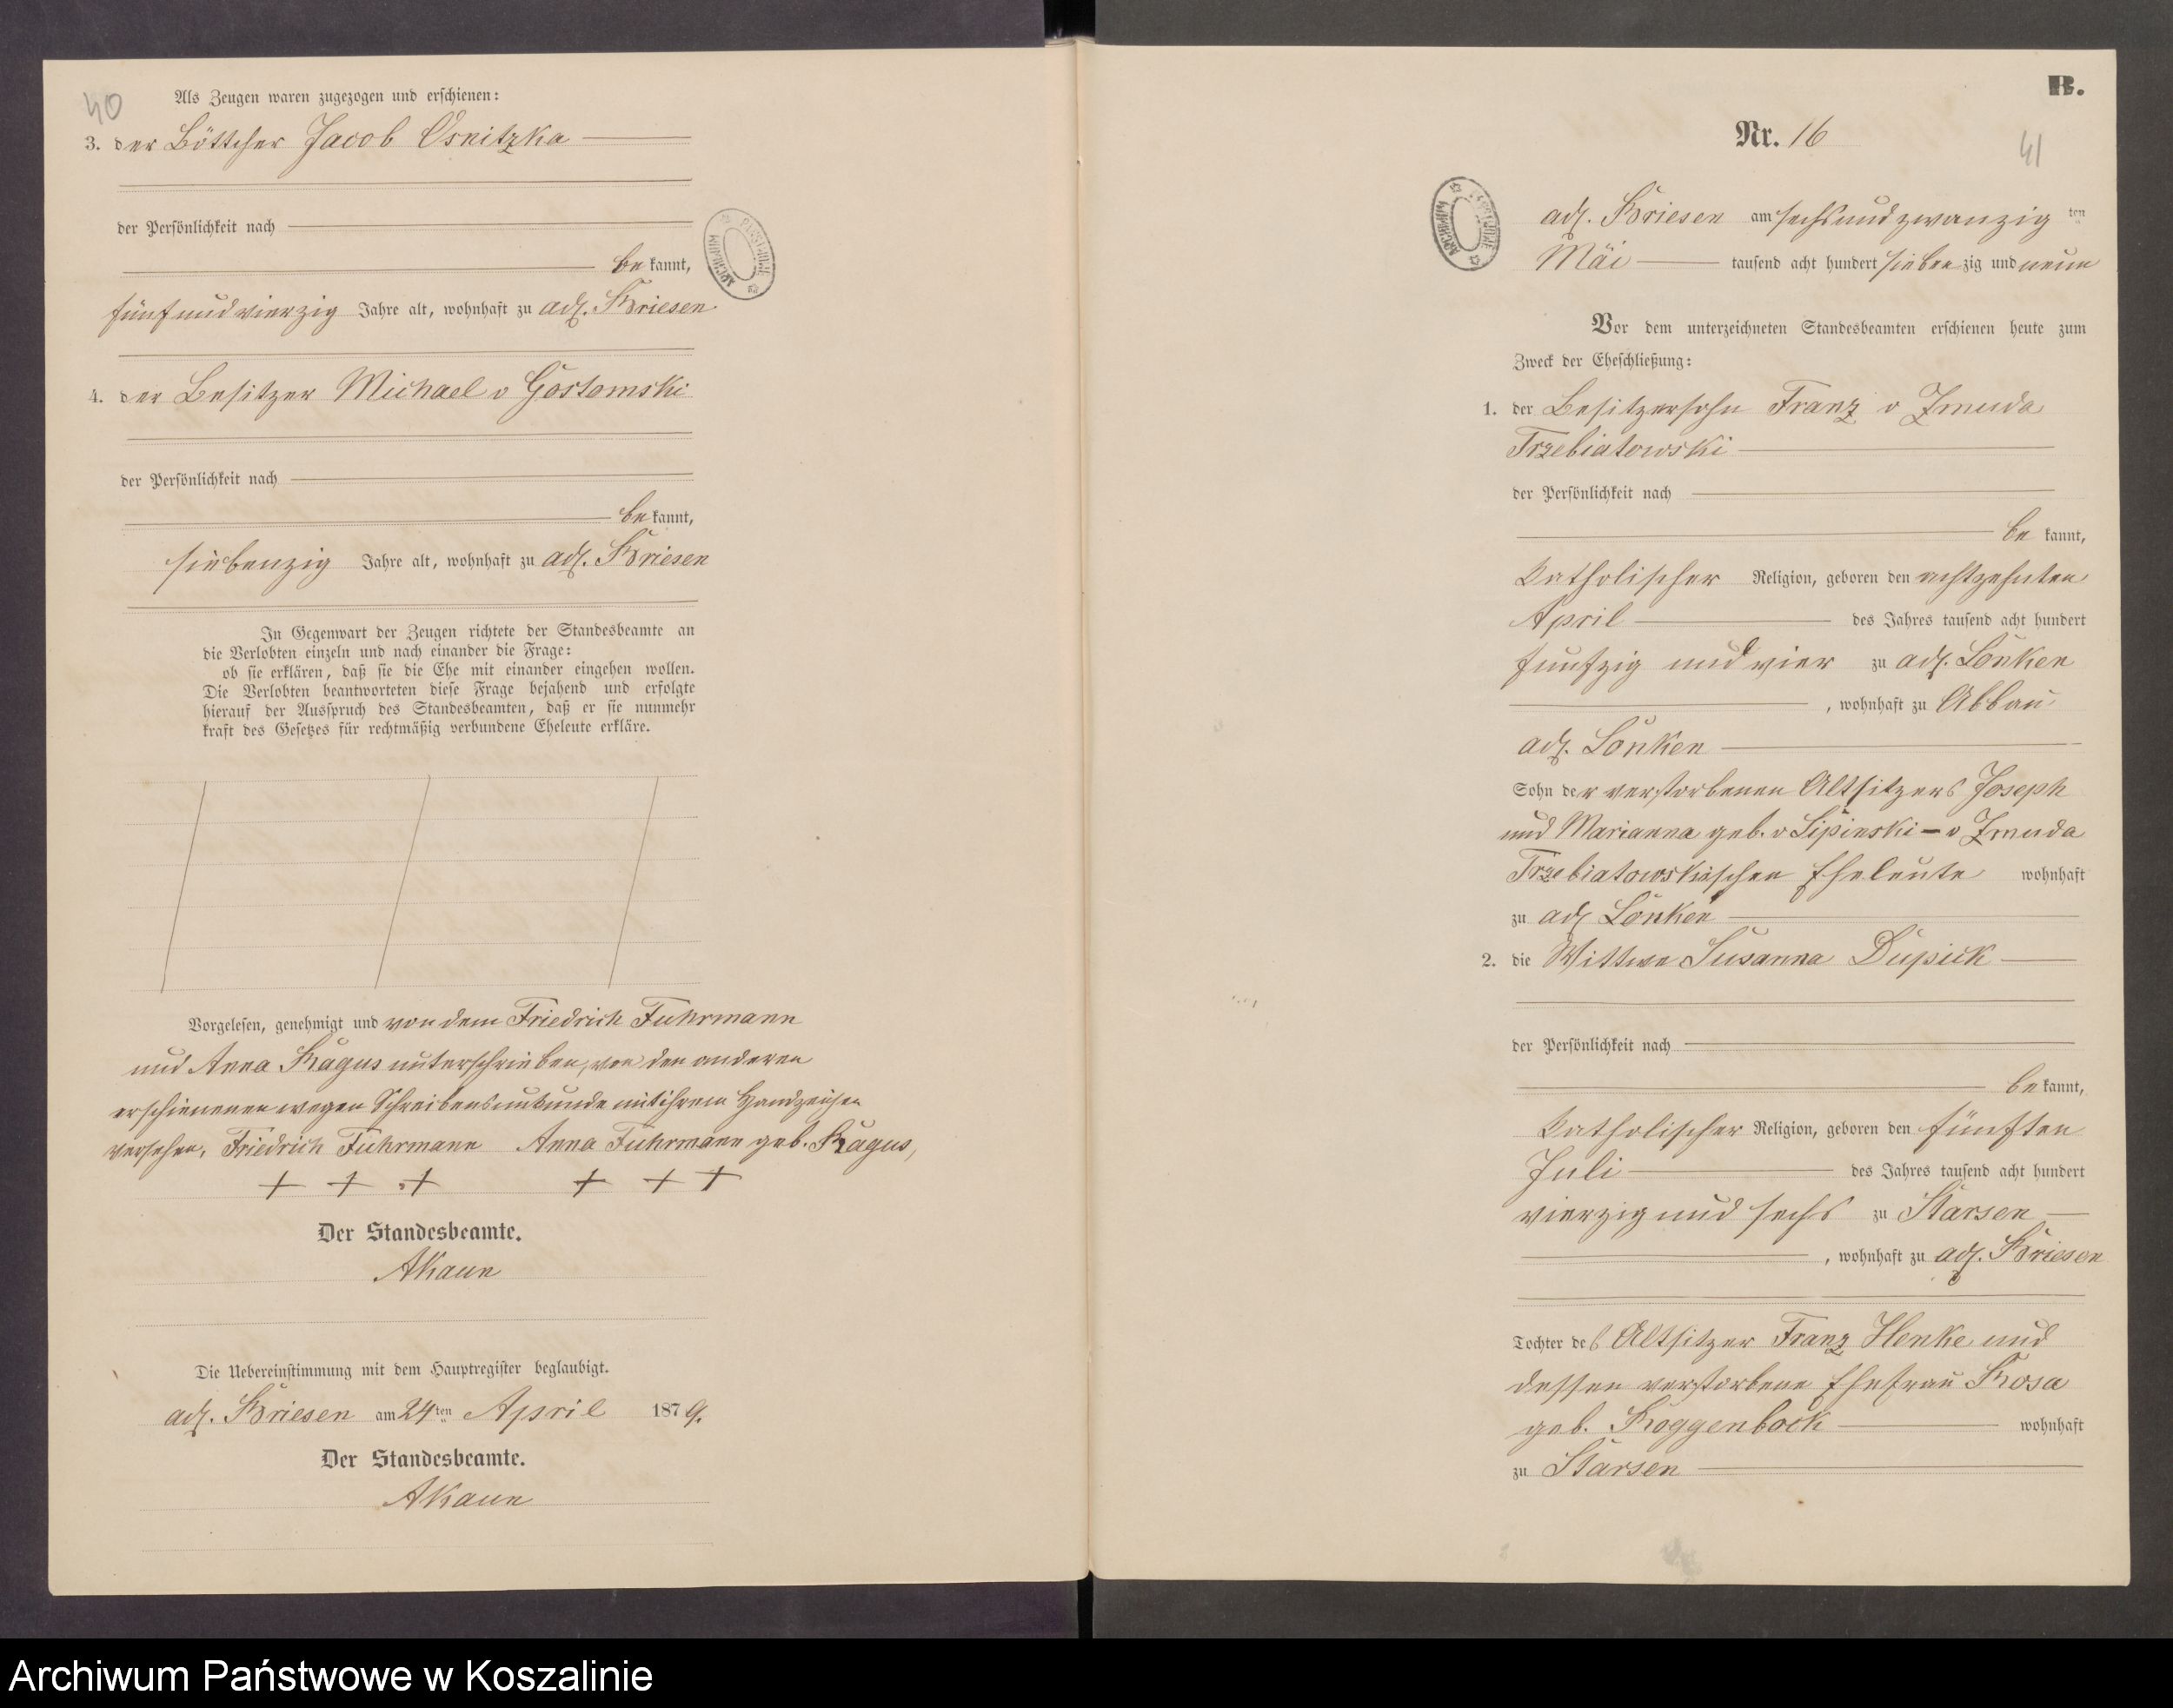 40
Als Zeugen waren zugezogen und erschienen:
3. der Böttcher Jacob Osnitzka
der Persönlichkeit nach
be kannt,
fünfundvierzig Jahre alt, wohnhaft zu adl. Briesen
4. der Besitzer Michael v Gostomski
der Persönlichkeit nach
be kannt,
siebenzig Jahre alt, wohnhaft zu adl. Briesen
In Gegenwart der Zeugen richtete der Standesbeamte an
die Verlobten einzeln und nach einander die Frage:
ob sie erklären, daß sie die Ehe mit einander eingehen wollen.
Die Verlobten beantworteten diese Frage bejahend und erfolgte
hierauf der Ausspruch des Standesbeamten, daß er sie nunmehr
kraft des Gesetzes für rechtmäßig verbundene Eheleute erkläre.
Vorgelesen, genehmigt und von dem Friedrich Fuhrmann
und Anna Ragus unterschrieben, von den anderen
erschienenen wegen Schreibensunkunde mit ihrem Handzeichen
versehen. Friedrich Fuhrmann Anna Fuhrmann geb. Ragus,
+ + + + + +
Der Standesbeamte.
AKaun
Die Uebereinstimmung mit dem Hauptregister beglaubigt.
adl. Briesen am 24ten April 1879.
Der Standesbeamte.
AKaun
B.
Nr. 16
41
adl. Briesen am sechsundzwanzig ten
Mai tausend acht hundert sieben zig und neun
Vor dem unterzeichneten Standesbeamten erschienen heute zum
Zweck der Eheschließung:
1. der Besitzersohn Franz v Zmuda
Trzebiatowski
der Persönlichkeit nach
be kannt,
katholischer Religion, geboren den achtzehnten
April des Jahres tausend acht hundert
funfzig und vier zu adl. Lonken
, wohnhaft zu Abbau
adl. Lonken
Sohn der verstorbenen Altsitzers Joseph
und Marianna geb. v Lipinski - v Zmuda
Trzebiatowskischen Eheleute wohnhaft
zu adl Lonken
2. die Wittwe Susanna Dupick
der Persönlichkeit nach
be kannt,
katholischer Religion, geboren den fünften
Juli des Jahres tausend acht hundert
vierzig und sechs zu Starsen
, wohnhaft zu adl. Briesen
Tochter des Altsitzer Franz Henke und
dessen verstorbene Ehefrau Rosa
geb. Roggenbock wohnhaft
zu Starsen
Archiwum Państwowe w Koszalinie